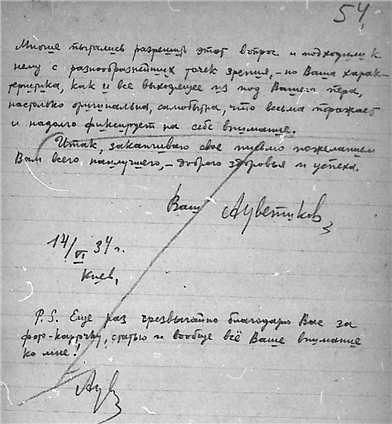 54
Многие пытались разрешить этот вопрос и подходили к
нему с разнообразнейших точек зрения, – но Ваша харак-
теристика, как и все выходящее из под Вашего пера,
настолько оригинальна, самобытна, что весьма поражает
и надолго фиксирует на себе внимание.
Итак, заканчиваю свое письмо пожеланием
Вам всего наилучшего, – доброго здоровья и успеха.
Ваш АЦветиков
14/VI 34 г.
Киев,
P.S. Еще раз чрезвычайно благодарю Вас за
фото-карточку, статью и вообще всё Ваше внимание
ко мне.
АЦв